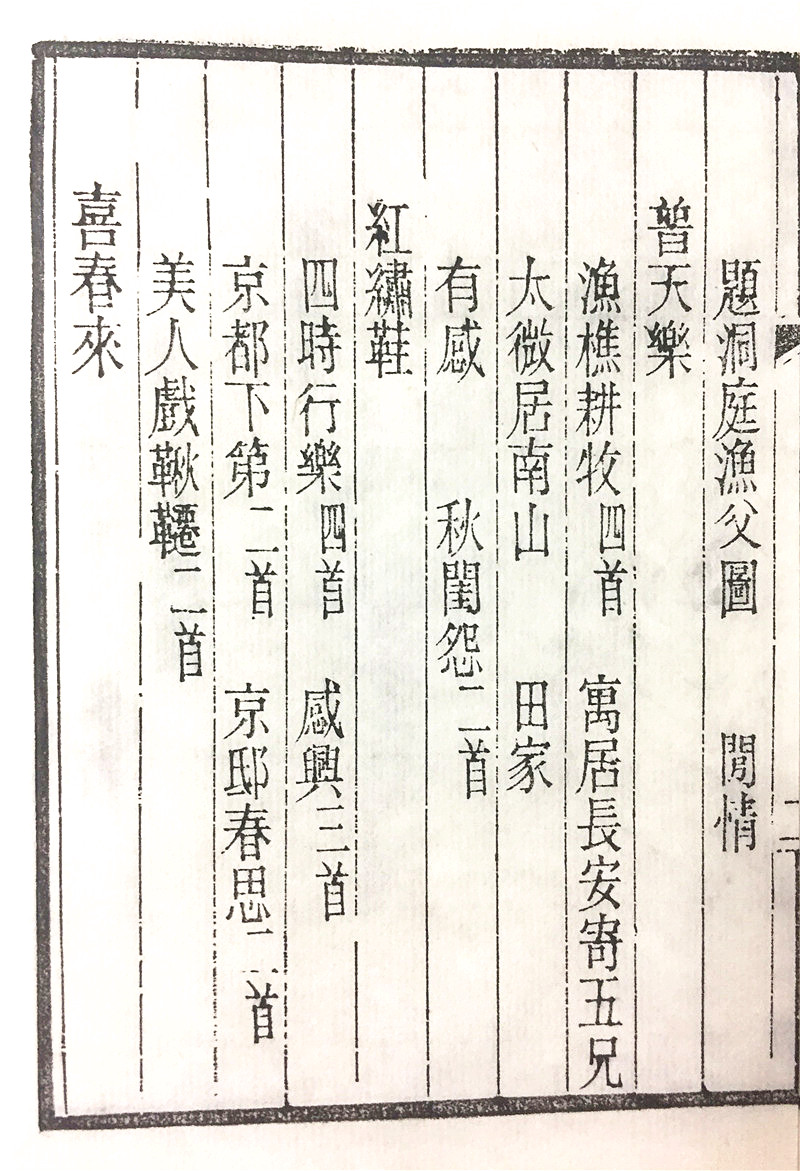 題洞庭漁父圖　閒情
普天樂
漁樵耕牧四首　寓居長安寄五兄
太微居南山　田家
有感　秋閨怨二首
紅繡鞋
四時行樂四首　感興三首
京都下第二首　京邸春思二首
美人戲鞦韆二首
喜春來